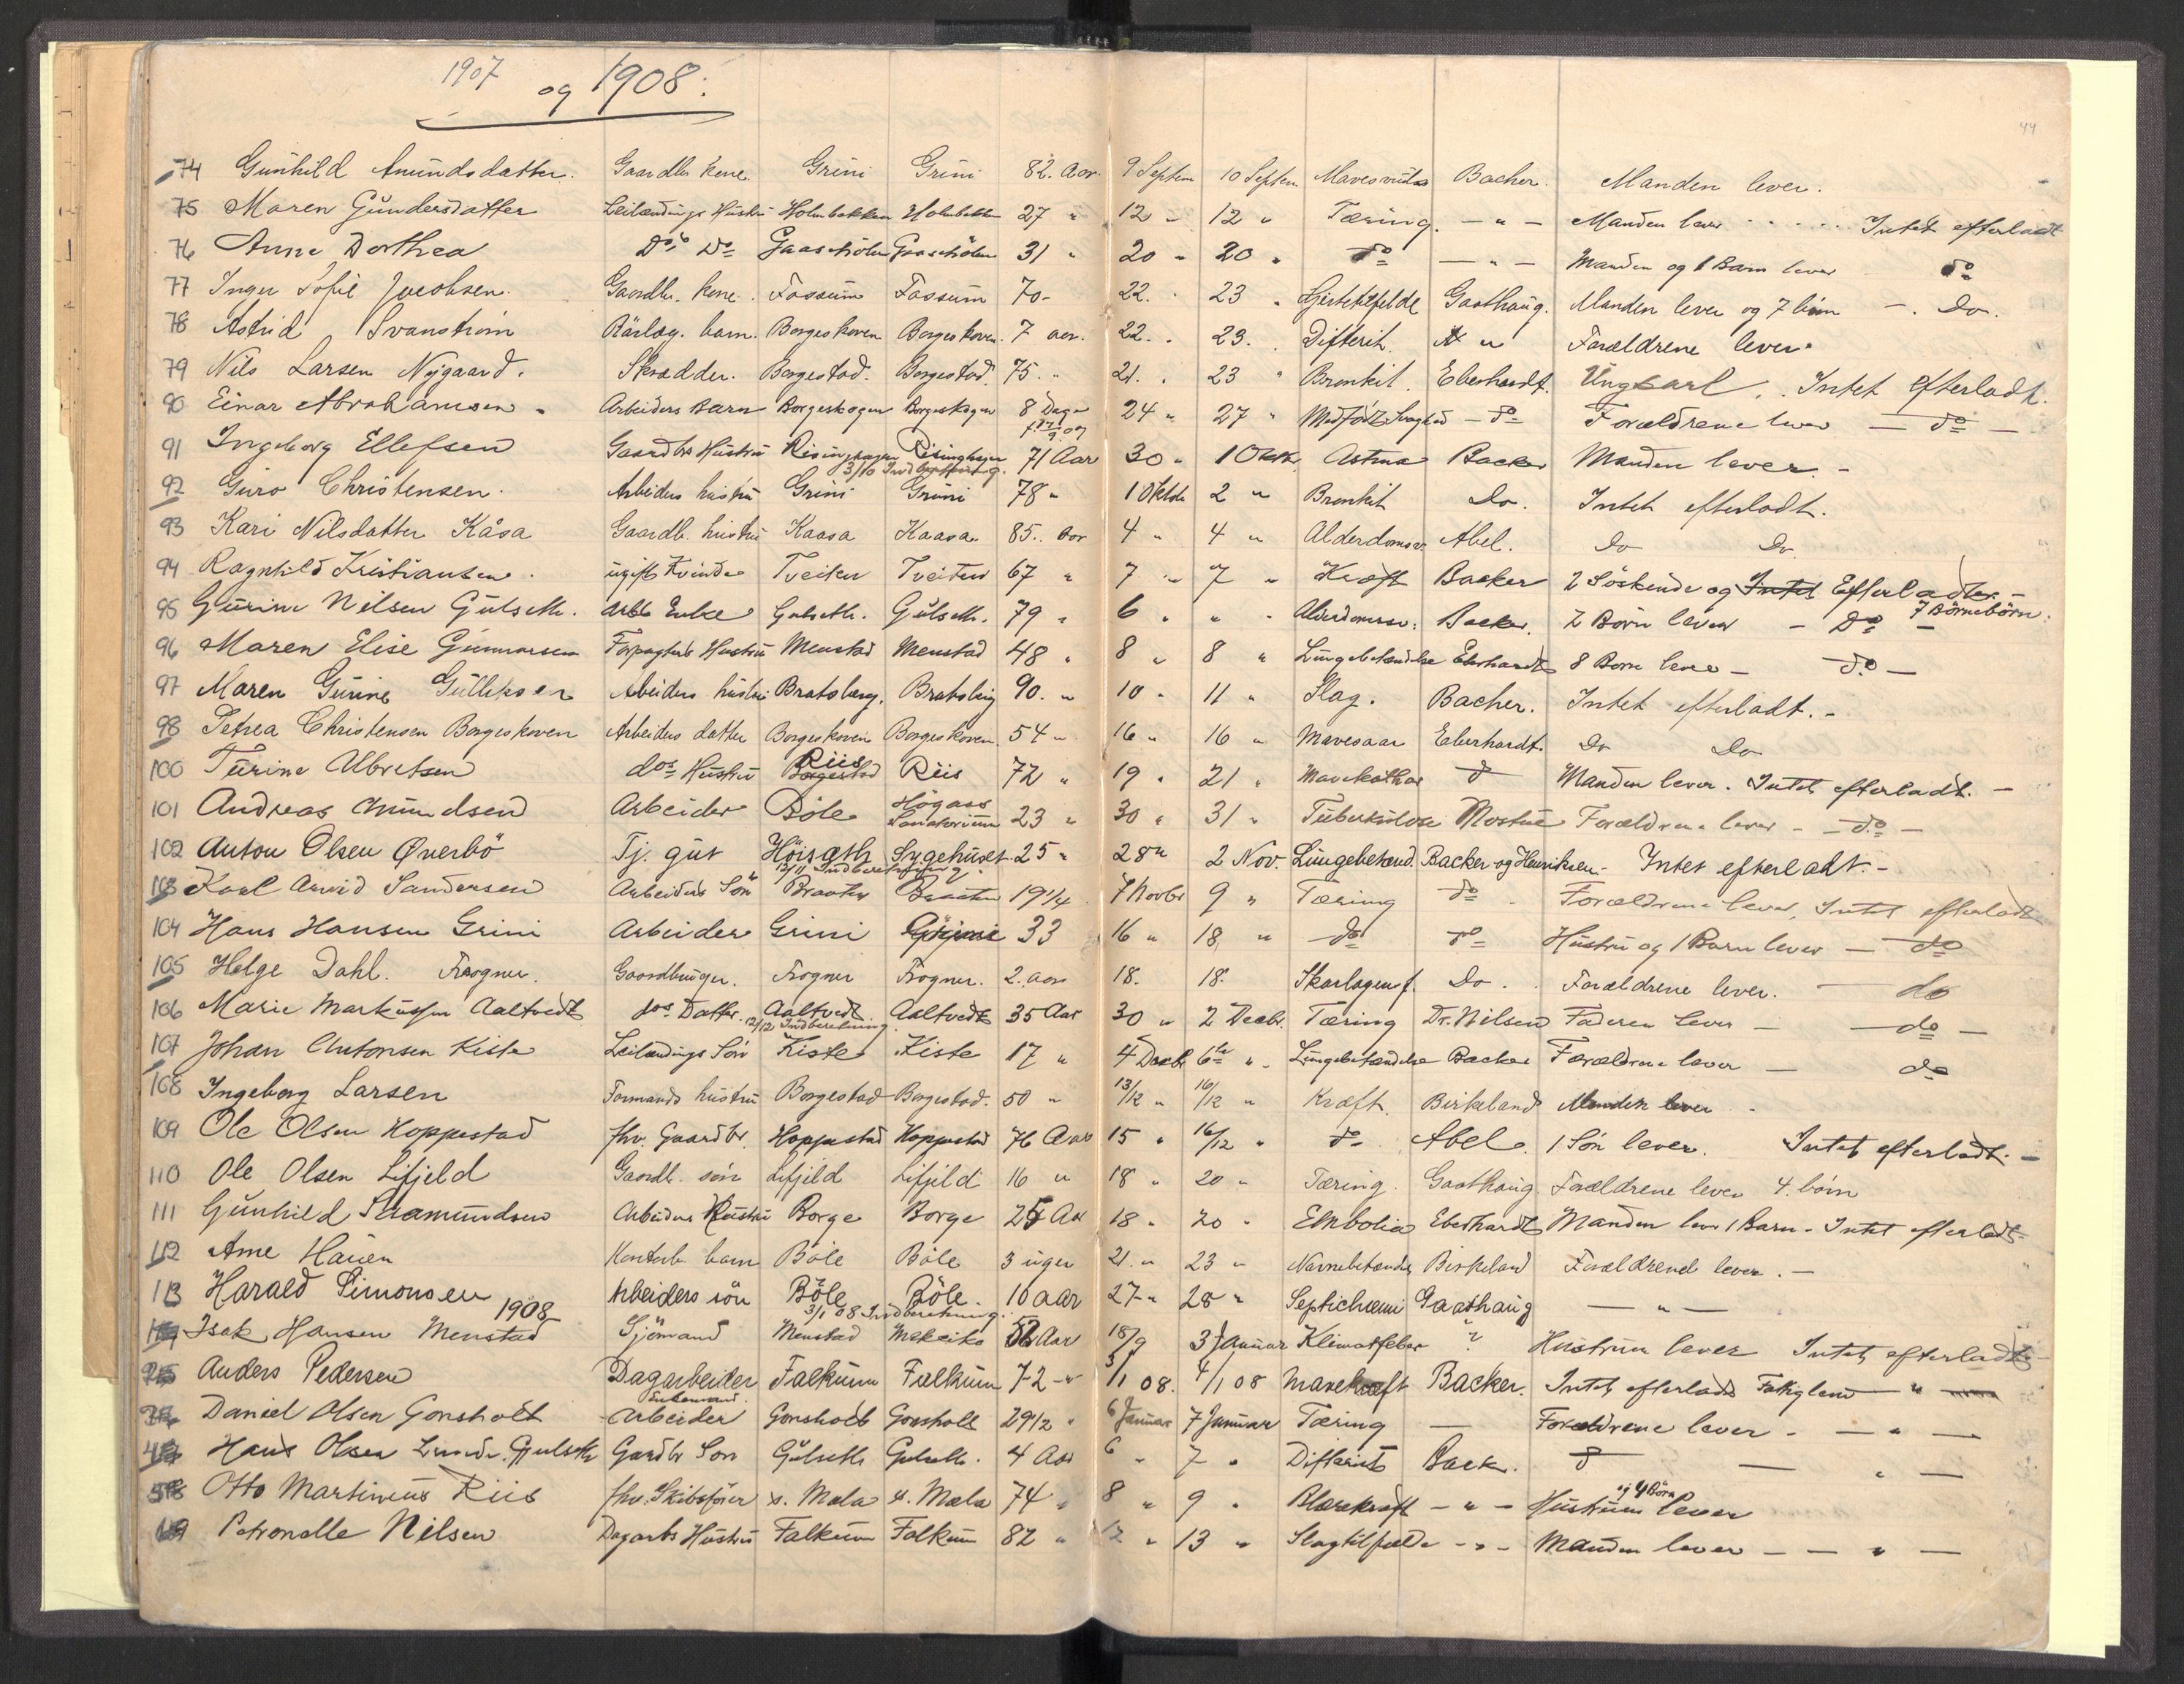 1907 og 1908:
44
74 Gunhild Amundsdatter. Gaardbr. kone. Grini Grini 82. Aar. 9 Septem 10 Septem. Bacher. Manden lever.
75 Maren Gundersdatter Leilændings Hustru Holmbakken Holmbakken 27 " 12 " 12 " Tæring. — " — Manden lever ..... Intet efterladt
76 Anne Dorthea Do Do Gaasehölen Gaasehölen 31 " 20 " 20 " do — " — Manden og 1 Barn lever do
77 Inger Sofie Jacobsen. Gaardbr. kone. Fossum Fossum 70- 22. " 23 " Hjertefeilde Gaathaug. Manden lever og 7 börn — . do.
78 Astrid Svanström barn. Borgeskoven Borgeskoven. 7 aar. 22. . 23. . Difterit. " Forældrene lever.
79 Nils Larsen Nygaard. Skrædder. Borgestad. Borgestad. 75. " 21. . 23 " Bronkit. Eberhardt. Ungkarl. . Intet efterladt.
90 Einar Abrahamsen. Arbeiders Barn Borgeskogen Borgeskogen 8 Dage 24 " 27 " Medfödt Svaghed — do Forældrene lever — do —
91 Ingeborg Ellefsen Gaardbr Hustru Risinghagen Risinghagen 71 Aar 30 " 1 Oktb. Astma Backer Manden lever. -
3/10 Indberetning.
92 Guro Christensen. Arbeiders hustru Grini Grini 78 " 1 Oktob 2 " Bronkit Do. Intet efterladt.
93 Kari Nilsdatter Kåsa Gaardb. hustru Kaasa Kaasa. 85. Aar 4 " 4 " Alderdomssv. Abel. do do.
94 Ragnhild Kristiansen. ugift Kvinde Tveiten Tveiten 67 " 7 " 7 " Kræft Backer 2 Söskende og Intet Efterladter. -
7 Börnebörn.
95 Gurine Nilsen Gulseth. Arbb Enke Gulseth. Gulseth. 79 " 6 " " " Alderdomssv. Backer. 2 Börn lever — Do —
96 Maren Elise Gunnarsen Forpagters Hustru Menstad Menstad 48 " 8 " 8 " Lungebetændelse Eberhardt 8 Born lever — do —
97 Maren Gurine Gulliksen Abeiders hustru Bratsberg. Bratsberg 90. " 10 " 11 " Slag. Bacher. Intet efterladt. -
98 Petrea Christensen Borgeskoven Arbeiders datter Borgeskoven Borgeskoven. 54 " 16 " 16 " Mavesaar Eberhardt. Do Do
100 Turine Albretsen dos Hustru Borgestad Riis Riis 72 " 19 " 21 " Mavekathar d Manden lever. Intet efterladt. -
101 Andreas Amundsen Arbeider Böle Högaas Sanatorium 23 " 30 " 31 " Tuberkulose Mostue Forældrene lever - — do —
102 Anton Olsen Øverbö Tj. gut Höisæth Sygehuset 25 " 28 " 2 Nov. Lungebetænd. Backer og Henriksen. Intet efterladt. -
13/11 Indberetning.
103 Karl Arvid Sandersen Arbeiders Sön Braaten Braaten 19 1/4 7 Novbr 9 " Tæring do Forældrene lever, Intet efterladt
104 Hans Hansen Grini Arbeider Grini Grini 33 16 " 18 " do do Hustru og 1 Barn lever — do
105 Helge Dahl. Frogner. Gaardbruger. Frogner Frogner. 2. aar 18. 18. Skarlagensf. Do. Forældrene lever. — do
106 Marie Markussen Aaltvedt dos Datter. Aaltvedt Aaltvedt 35 Aar 30 " 2 Decbr. Tæring Dr. Nilsen Faderen Lever — — do —
12/12 Indberetning.
107 Johan Antonsen Kiste Leilændings Sön Kiste Kiste 17 " 4 Decb 6te " Lungebetændelse Backer Forældrene lever — do
108 Ingeborg Larsen Formands hustru Borgestad Borgestad. 50 " 13/12 " 16/12 " Kræft. Birkeland Manden lever
109 Ole Olsen Hoppestad fhv. Gaardbr. Hoppestad Hoppestad 76 Aar 15 " 16/12 " do Abel. 1 Sön lever. Intet efterladt. -
110 Ole Olsen Lifjeld Gaardb. sön Lifjeld Lifjeld 16 " 18 " 20 " Tæring. Gaathaug Forældrene lever 4. börn
111 Gunhild Saamundsen Arbeiders Hustru Borge Borge 25 Aar 18 " 20 " Embolia Eberhardt Manden lever 1 Barn - Intet efterladt -
112 Arne Hauen Kontorb. barn Böle Böle 3 uger 21. " 23 " Birkeland Forældrene lever. -
113 Harald Simonsen Arbeiders sön Böle Böle. 10 aar 27 " 28 " Septichæmi Gaathaug — " —
1908 3/1 08 Indberetning.
Isak Hansen Menstad Sjömand Menstad Mexiko Aar 18/9 3 Januar Klimatfeber ? Hustruen lever Intet efterladt -
Anders Pedersen Dagarbeider Falkum Falkum 72 " 3/1 08. 4/1 08 Mavekræft Backer. Intet efterladt Fattiglem — "
Enkemand.
Daniel Olsen Gonsholt Arbeider Gonsholt Gonsholt 29 1/2 " 6 Januar 7 Januar Tæring — Forældrene lever - — " —
Hans Olsen Lunde. Gjulseth Gardbr Sön Gulseth Gulseth. 4 Aar 6 " 7 " Difterit Back. d — " —
Otto Martinius Riis fhv. Skibsförer n. Mæla n. Mæla 74 " 8 " 9 " Blærekræft — " — Hustruen og 4 Börn lever
Petronelle Nilsen Dagarbs Hustru Falkum Falkum 82 " 12 " 13 " Slagtilfælde - " - Manden lever — — " —